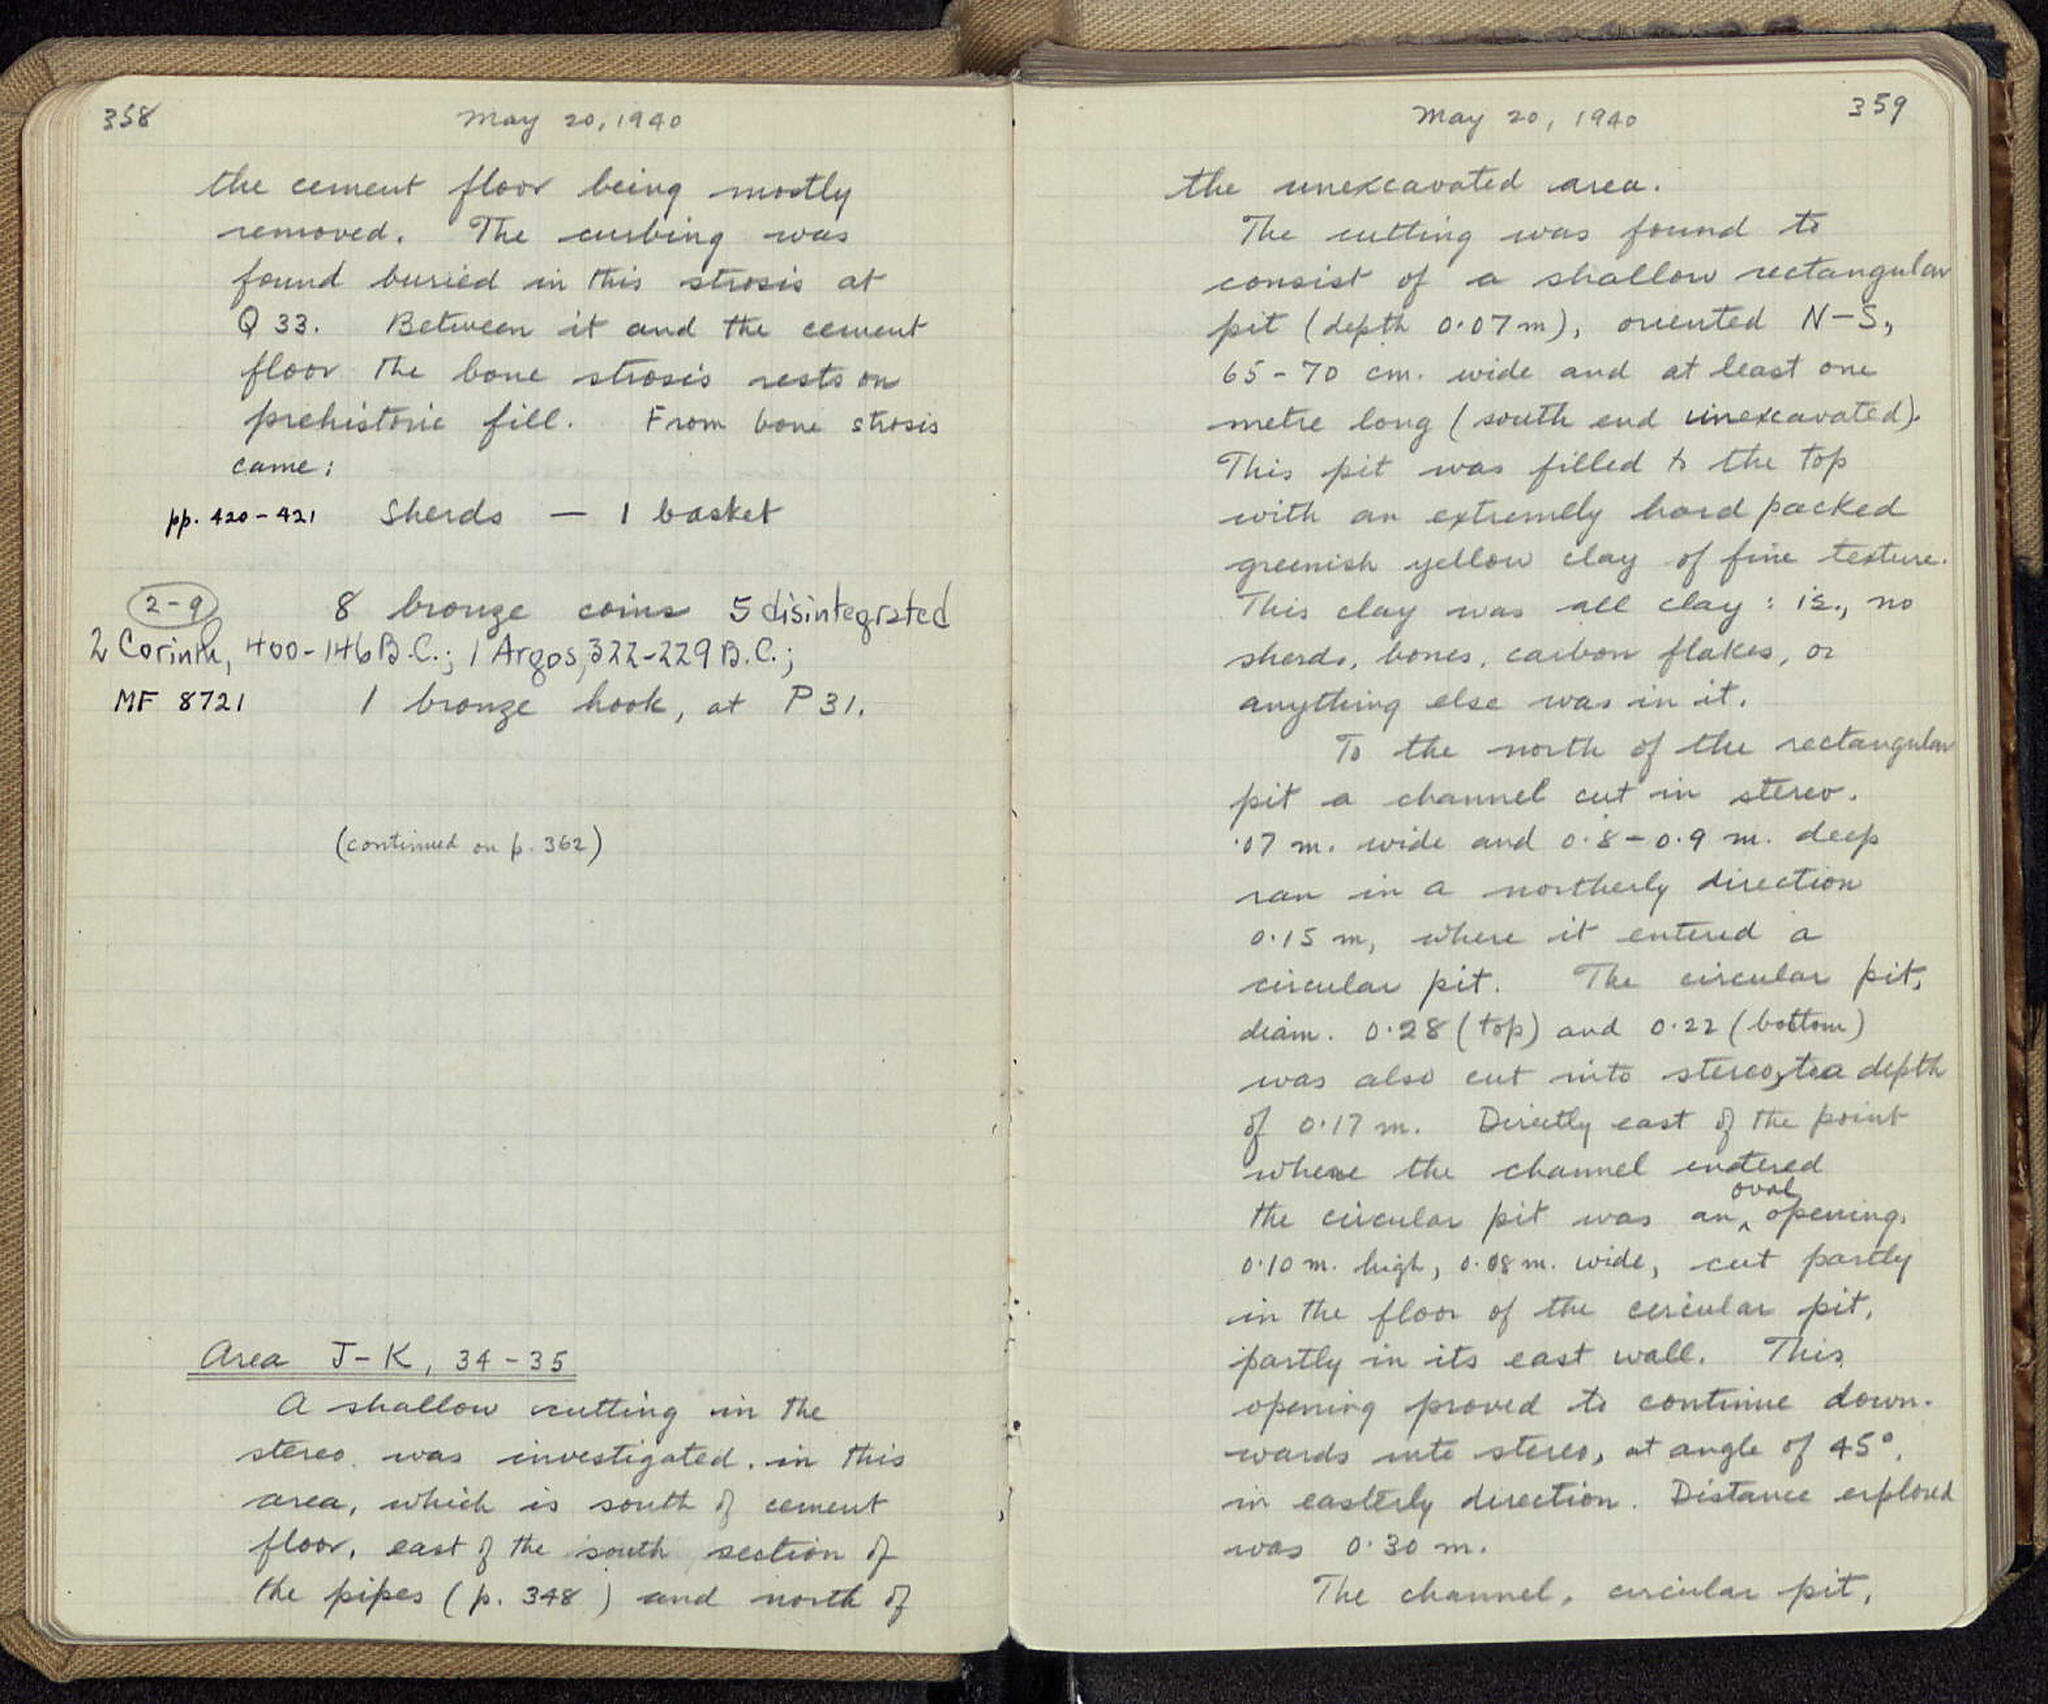 358
May 20, 1940
the cement floor being mostly
removed. The curbing was
found buried in this strosis at
Q 33. Between it and the cement
floor the bone strosis rests on
prehistoric fill. From bone strosis
came:
pp. 420-421 Sherds — 1 basket
2-9 8 bronze coins 5 disintegrated
2 Corinth, 400-146 B.C.; 1 Argos, 322-229 B.C.;
MF 8721 1 bronze hook, at P 31.
(continued on p. 362)
Area J-K, 34-35
A shallow cutting in the
stereo was investigated in this
area, which is south of cement
floor, east of the south section of
the pipes (p. 348) and north of
May 20, 1940
359
the unexcavated area.
The cutting was found to
consist of a shallow rectangular
pit (depth 0.07 m), oriented N-S,
65-70 cm. wide and at least one
metre long (south end unexcavated).
This pit was filled to the top
with an extremely hard packed
greenish yellow clay of fine texture.
This clay was all clay: i.e., no
sherds, bones, carbon flakes, or
anything else was in it.
To the north of the rectangular
pit a channel cut in stereo.
.07 m. wide and 0.8-0.9 m. deep
ran in a northerly direction
0.15 m, where it entered a
circular pit. The circular pit,
diam. 0.28 (top) and 0.22 (bottom)
was also cut into stereo, to a depth
of 0.17 m. Directly east of the point
where the channel entered
the circular pit was an oval opening.
0.10 m. high, 0.08 m. wide, cut partly
in the floor of the circular pit,
partly in its east wall. This
opening proved to continue down-
wards into stereo, at angle of 45°,
in easterly direction. Distance explored
was 0.30 m.
The channel, circular pit,